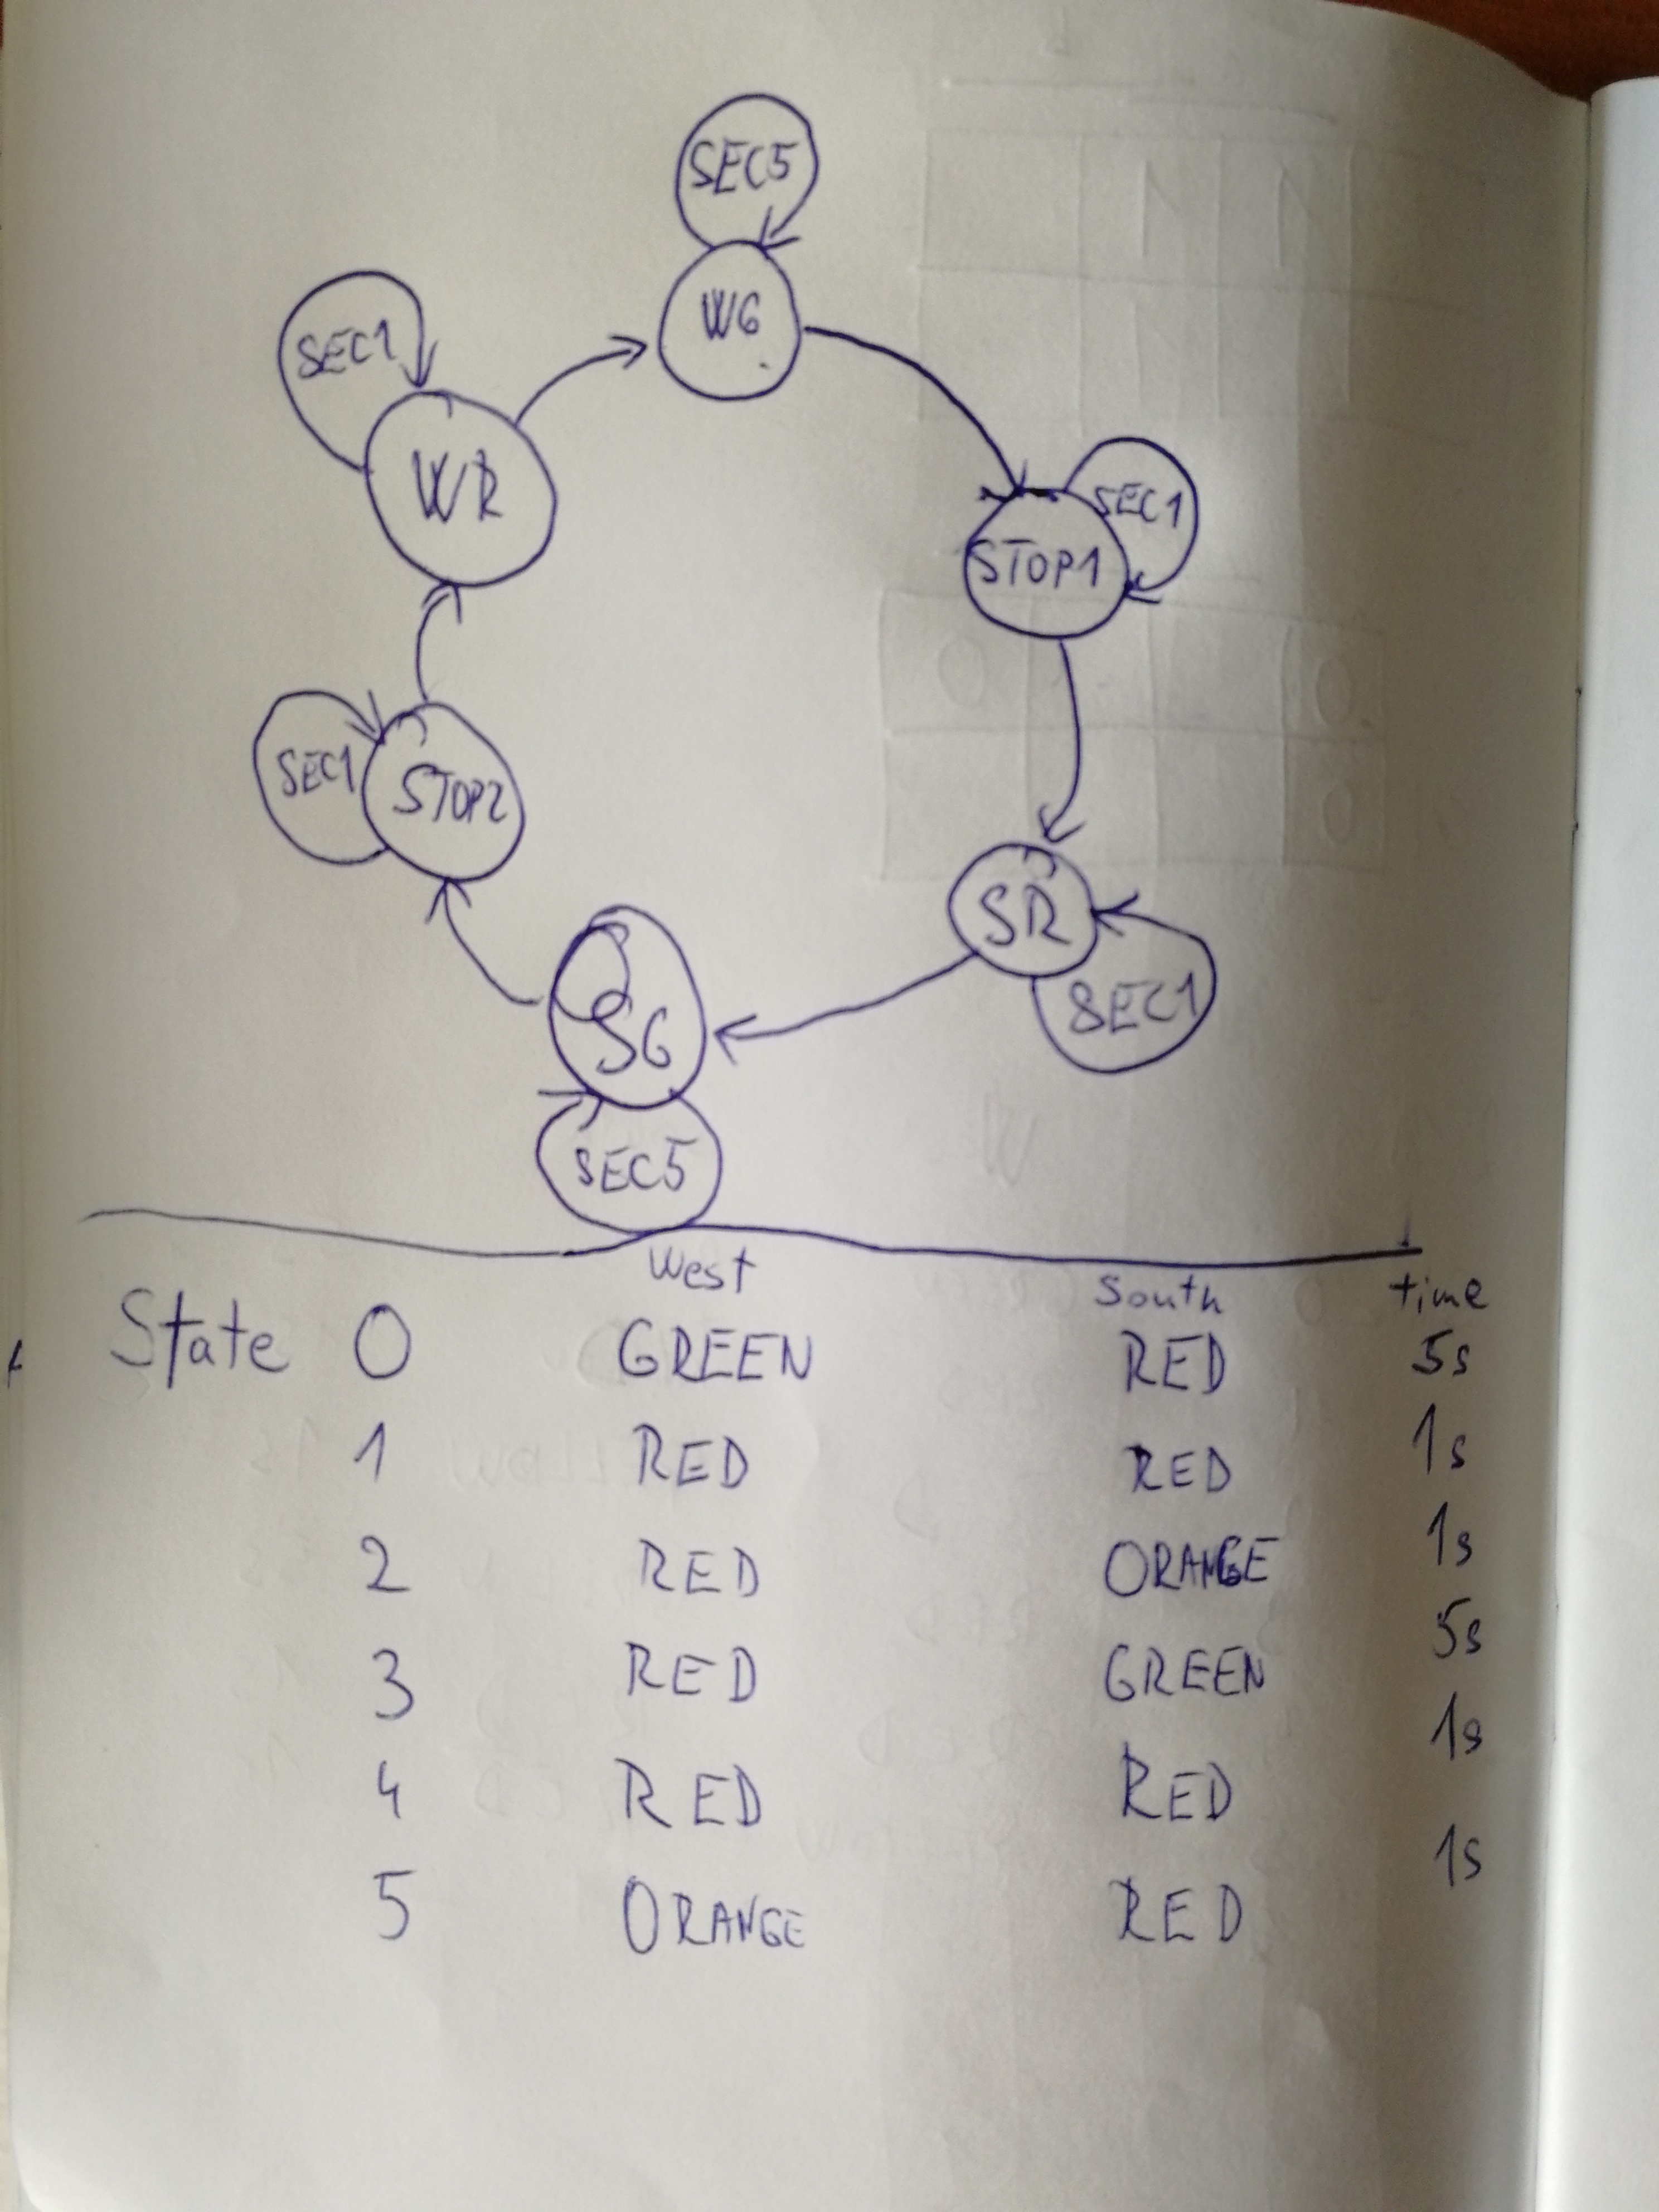 SEC5
WG
SEC1
WR
SEC1
STOP1
SEC1
STOP2
SR
SEC1
SG
SEC5
West South time
State 0 GREEN RED 5s
1 RED RED 1s
2 RED ORANGE 1s
3 RED GREEN 5s
4 RED RED 1s
5 ORANGE RED 1s